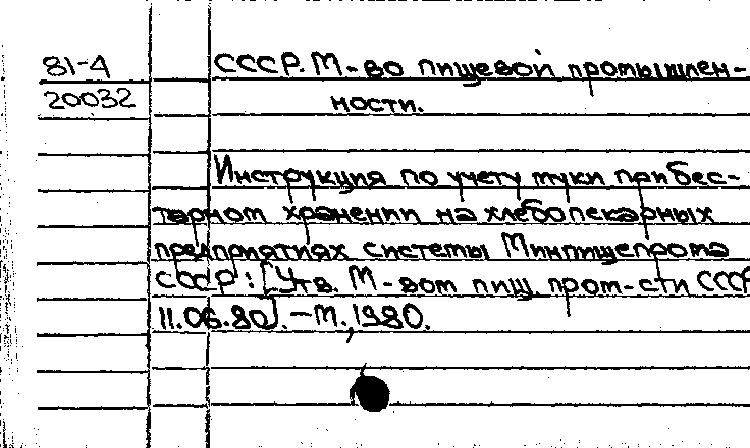 81-4
СССР. М-во пищевой промышлен-
20032
ности.
Инструкция по учету муки при бес-
тарном хранении на хлебопекарных
предприятиях системы Минпищепрома
СССР: [Утв. М-вом пищ. пром-сти СССР
11.06.80]. – М., 1980.